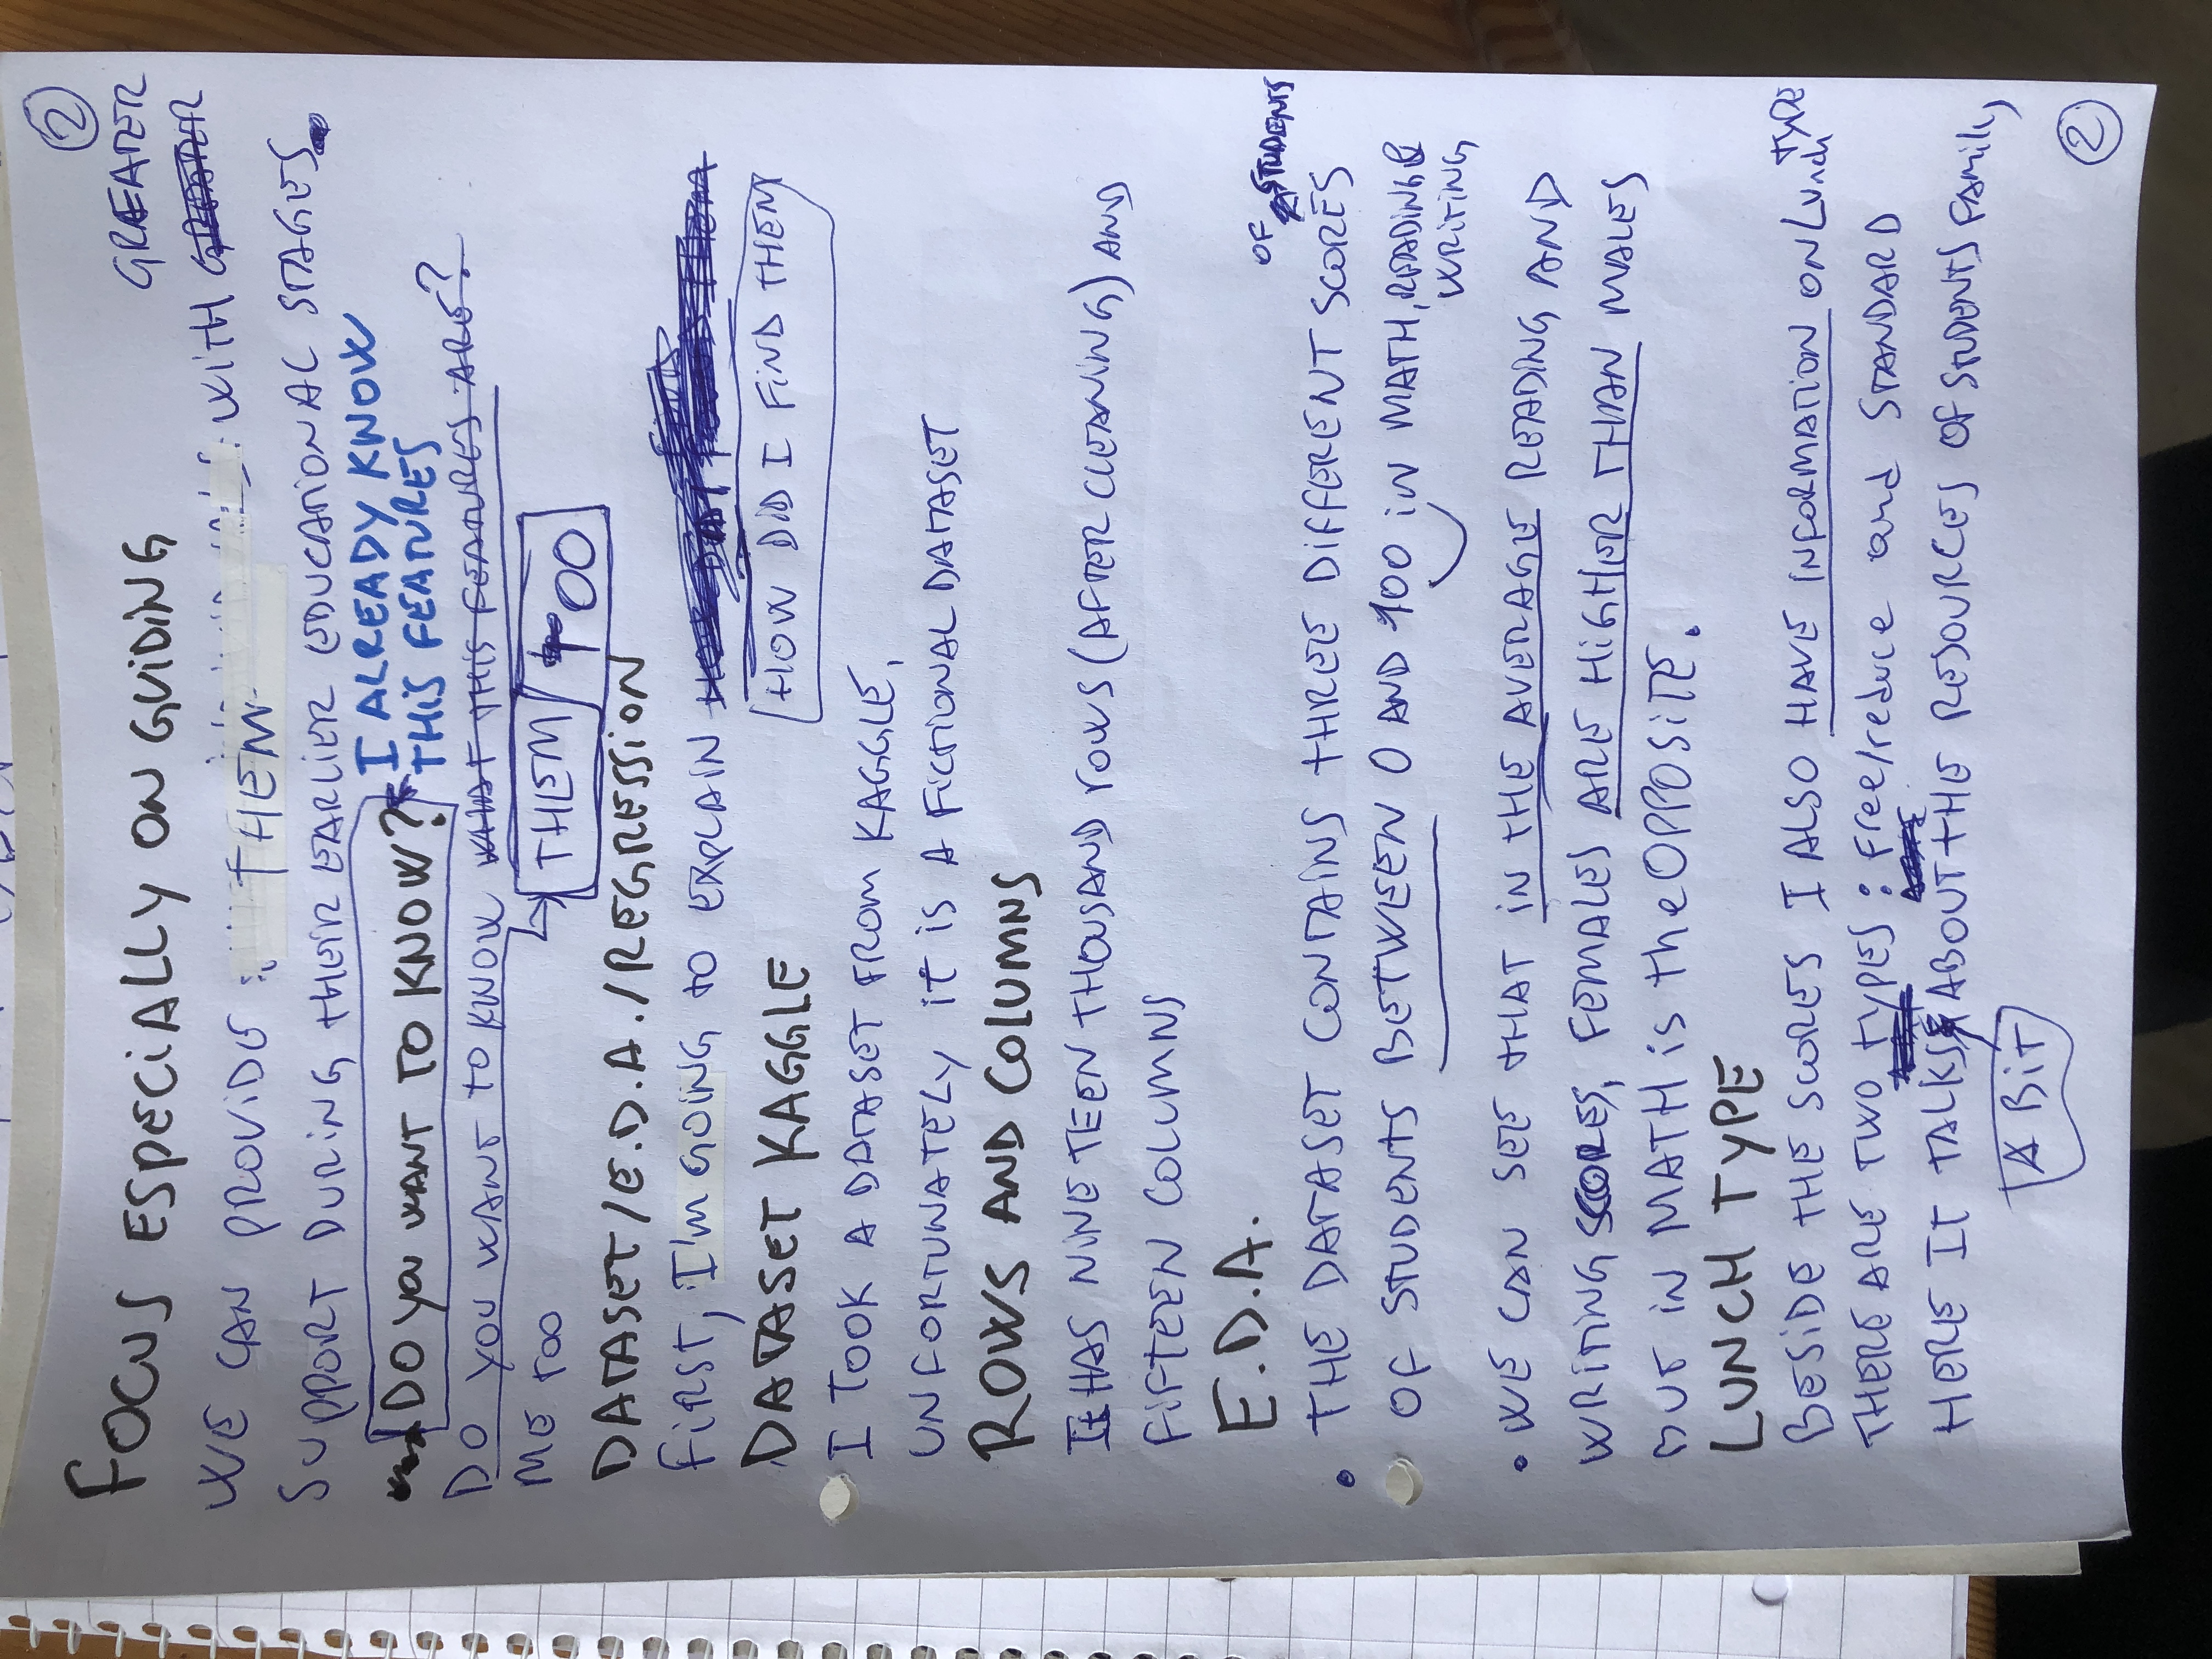 2
FOCUS ESPECIALLY ON GUIDING
GREATER
WE CAN PROVIDE THEM WITH GREATER
SUPPORT DURING THEIR EARLIER EDUCATIONAL STAGES.
DO YOU WANT TO KNOW?
I ALREADY KNOW
THIS FEATURES
DO YOU WANT TO KNOW WHAT THIS FEATURES ARE?
ME TOO
THEM TOO
DATASET/E.D.A./REGRESSION
FIRST, I'M GOING TO EXPLAIN
DATASET KAGGLE
HOW DID I FIND THEM
I TOOK A DATASET FROM KAGGLE,
UNFORTUNATELY it is A FICTIONAL DATASET
ROWS AND COLUMNS
It HAS NINE TEEN THOUSAND rows (AFTER CLEANING) AND
FIFTEEN COLUMNS
E.D.A.
OF STUDENTS
• THE DATASET CONTAINS THREE DIFFERENT SCORES
OF STUDENTS BETWEEN 0 AND 100 in MATH, READING &
WRITING
• WE CAN SEE THAT IN THE AVERAGE READING AND
WRITING SCORES, FEMALES ARE HIGHER THAN MALES
BUT IN MATH is the OPPOSITE.
LUNCH TYPE
BESIDE THE SCORES I ALSO HAVE INFORMATION ON Lunch TYPE
THERE ARE TWO TYPES: Free/reduce and STANDARD
HERE IT TALKS ABOUT THE RESOURCES OF STUDENTS Family
A BIT
2